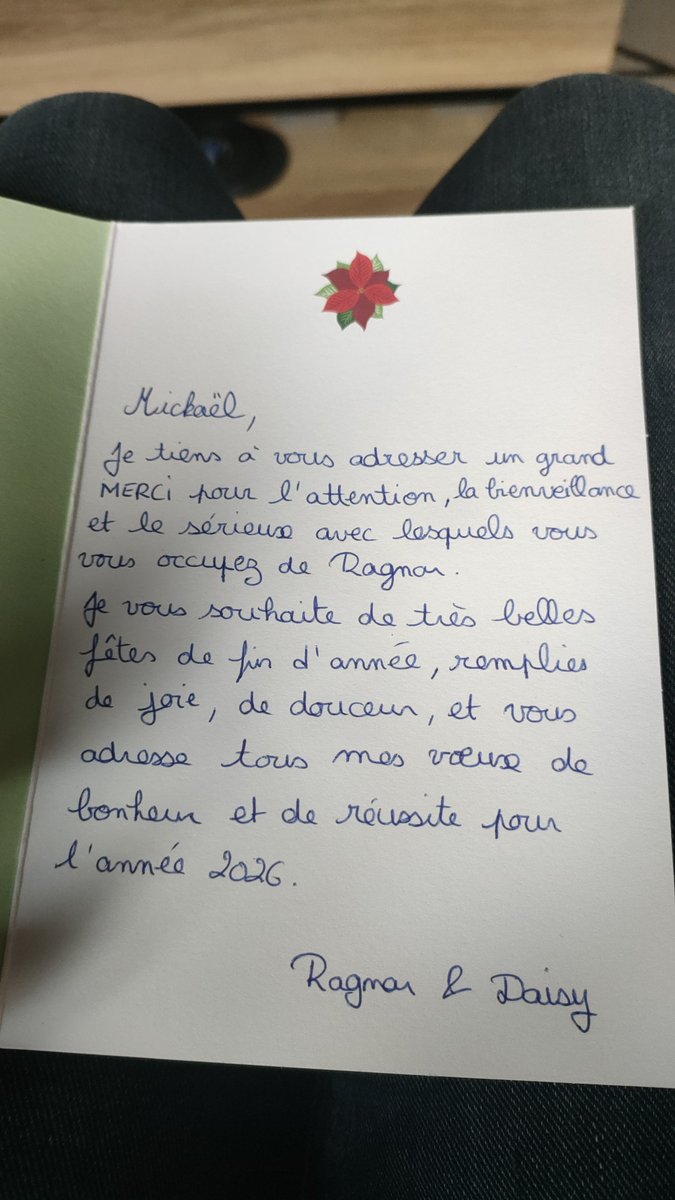 Mickaël,
Je tiens à vous adresser un grand
MERCi pour l'attention, la bienveillance
et le sérieux avec lesquels vous
vous occupez de Ragnar.
Je vous souhaite de très belles
fêtes de fin d'année, remplies
de joie, de douceur, et vous
adresse tous mes vœux de
bonheur et de réussite pour
l'année 2026.
Ragnar & Daisy